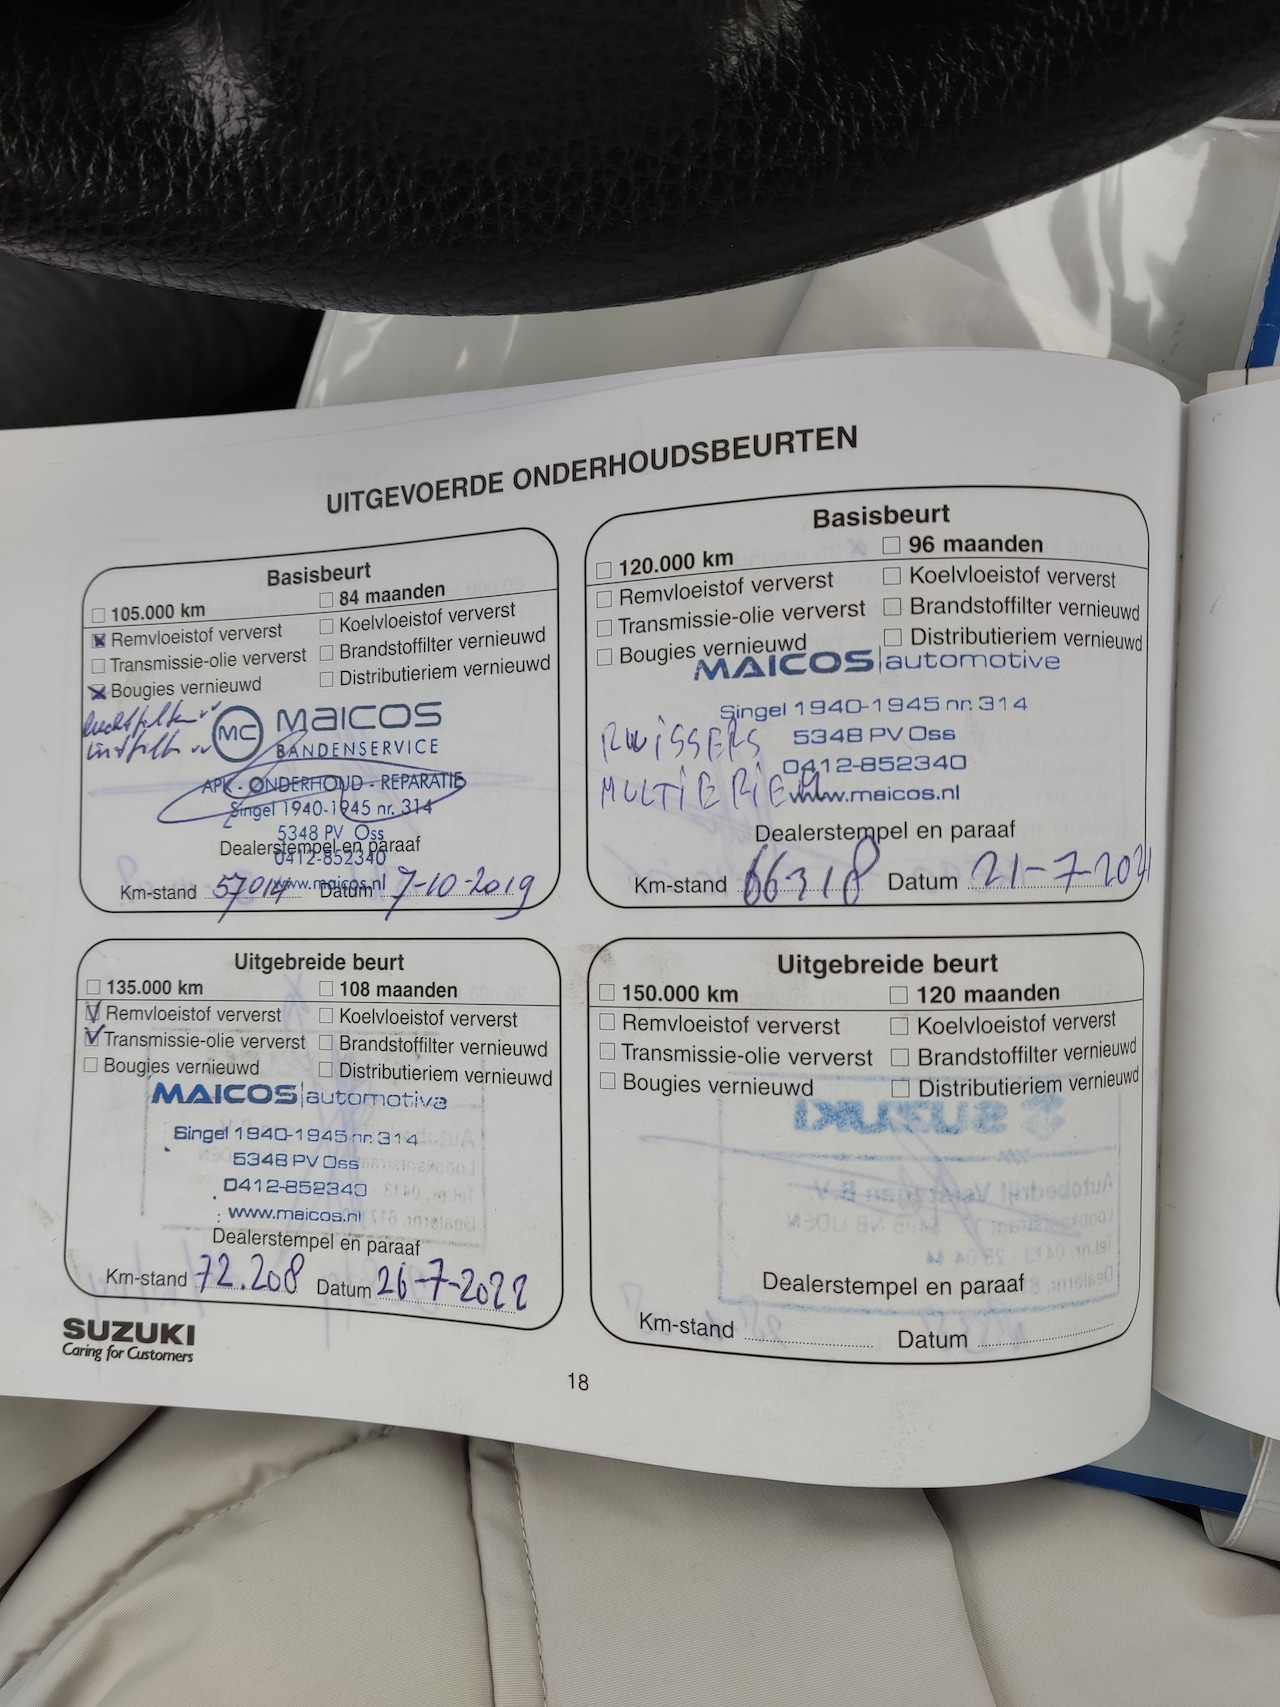 UITGEVOERDE ONDERHOUDSBEURTEN
Basisbeurt
☐ 105.000 km ☐ 84 maanden
☒ Remvloeistof ververst ☐ Koelvloeistof ververst
☐ Transmissie-olie ververst ☐ Brandstoffilter vernieuwd
☒ Bougies vernieuwd ☐ Distributieriem vernieuwd
MC MAICOS
BANDENSERVICE
APK - ONDERHOUD - REPARATIE
Singel 1940-1945 nr. 314
5348 PV Oss
Dealerstempel en paraaf
0412-852340
www.maicos.nl
Km-stand 57014 Datum 7-10-2019
Basisbeurt
☐ 120.000 km ☐ 96 maanden
☐ Remvloeistof ververst ☐ Koelvloeistof ververst
☐ Transmissie-olie ververst ☐ Brandstoffilter vernieuwd
☐ Bougies vernieuwd ☐ Distributieriem vernieuwd
MAICOS|automotive
Singel 1940-1945 nr. 314
RWISSERS 5348 PV Oss
0412-852340
MULTIERIEM www.maicos.nl
Dealerstempel en paraaf
Km-stand 66318 Datum 21-7-2021
Uitgebreide beurt
☐ 135.000 km ☐ 108 maanden
☑ Remvloeistof ververst ☐ Koelvloeistof ververst
☑ Transmissie-olie ververst ☐ Brandstoffilter vernieuwd
☐ Bougies vernieuwd ☐ Distributieriem vernieuwd
MAICOS|automotive
Singel 1940-1945 nr. 314
5348 PV Oss
0412-852340
www.maicos.nl
Dealerstempel en paraaf
Km-stand 72.208 Datum 26-7-2022
Uitgebreide beurt
☐ 150.000 km ☐ 120 maanden
☐ Remvloeistof ververst ☐ Koelvloeistof ververst
☐ Transmissie-olie ververst ☐ Brandstoffilter vernieuwd
☐ Bougies vernieuwd ☐ Distributieriem vernieuwd
Dealerstempel en paraaf
Km-stand Datum
SUZUKI
Caring for Customers
18